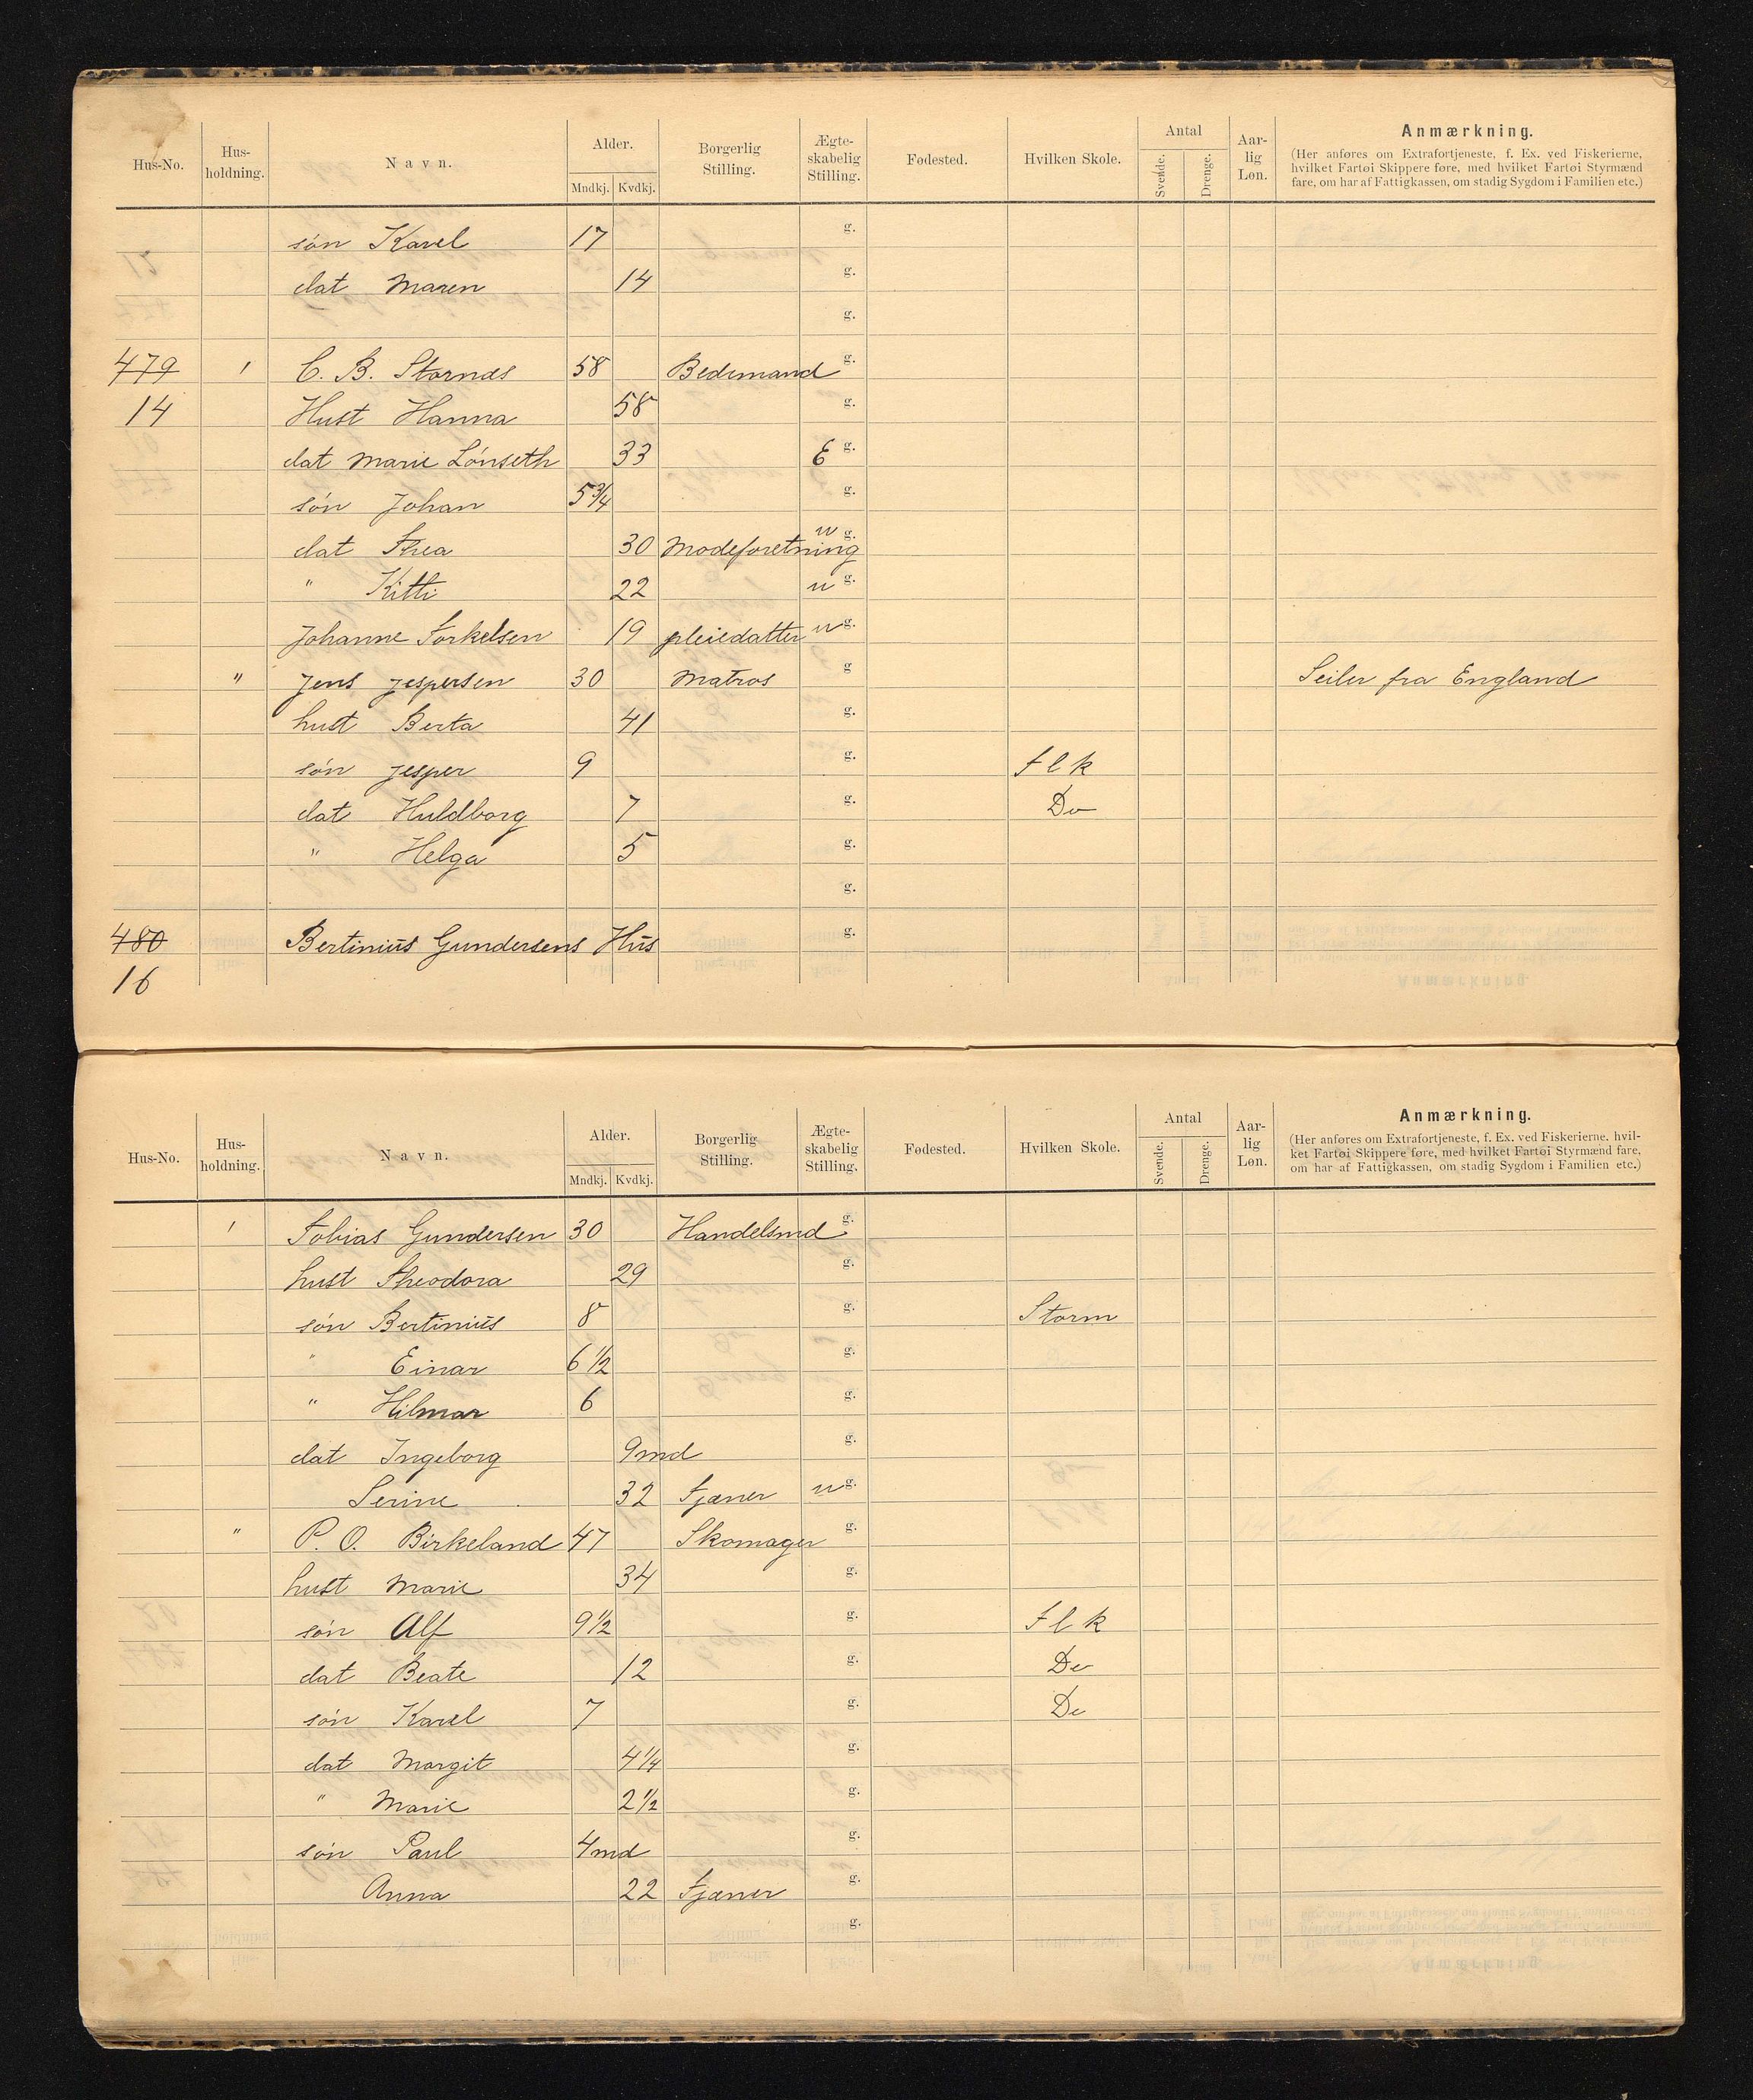 Hus-No. Hus-holdning. Navn. Alder. Mndkj. Kvdkj. Borgerlig Stilling. Ægte-skabelig Stilling. Fødested. Hvilken Skole. Antal Svende. Drenge. Aar-lig Løn. Anmærkning.
(Her anføres om Extrafortjeneste, f. Ex. ved Fiskerierne,
hvilket Fartøi Skippere føre, med hvilket Fartøi Styrmænd
fare, om har af Fattigkassen, om stadig Sygdom i Familien etc.)
søn Karel 17 g.
dat Maren 14 g.
g.
479 1 C. B. Stornæs 58 Bedemand g.
14 Hust Hanna 58 g.
dat Marie Lønseth 33 E g.
søn Johan 5 3/4 g.
dat Thea 30 Modeforetning u g.
" Kitti 22 u g.
Johanne Torkelsen 19 pleiedatter u g.
" Jens Jespersen 30 Matros g Seiler fra England
hust Berta 41 g.
søn Jesper 9 g. f l k
dat Huldborg 7 g. Do
" Helga 5 g.
g.
480 Bertinius Gundersens Hus g.
16
Hus-No. Hus-holdning. Navn. Alder. Mndkj. Kvdkj. Borgerlig Stilling. Ægte-skabelig Stilling. Fødested. Hvilken Skole. Antal Svende. Drenge. Aar-lig Løn. Anmærkning.
(Her anføres om Extrafortjeneste, f. Ex. ved Fiskerierne. hvil-
ket Fartøi Skippere føre, med hvilket Fartøi Styrmænd fare,
om har af Fattigkassen, om stadig Sygdom i Familien etc.)
1 Tobias Gundersen 30 Handelsmd g.
hust Theodora 29 g.
søn Bertinius 8 g. Storm
" Einar 6 1/2 g.
" Hilmar 6 g.
dat Ingeborg 9md g.
Serine 32 tjæner u g.
" P. O. Birkeland 47 Skomager g.
hust Marie 34 g.
søn Alf 9 1/2 g. f l k
dat Beate 12 g. Do
søn Karel 7 g. Do
dat Margit 4 1/4 g.
" Marie 2 1/2 g.
søn Paul 4md g.
Anna 22 tjæner g.
g.